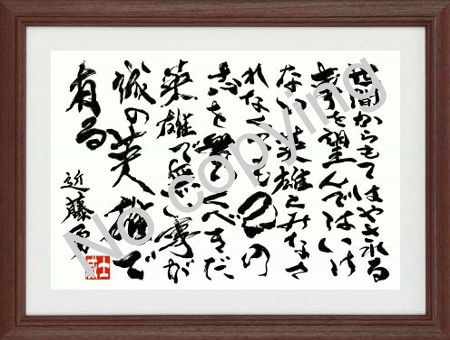 世間からもてはやされる
事を望んではいけ
ない英雄とみなさ
れなくても己の
志を くべきだ
英雄で無い事が
誠の英雄で
有る
近藤勇
No copying